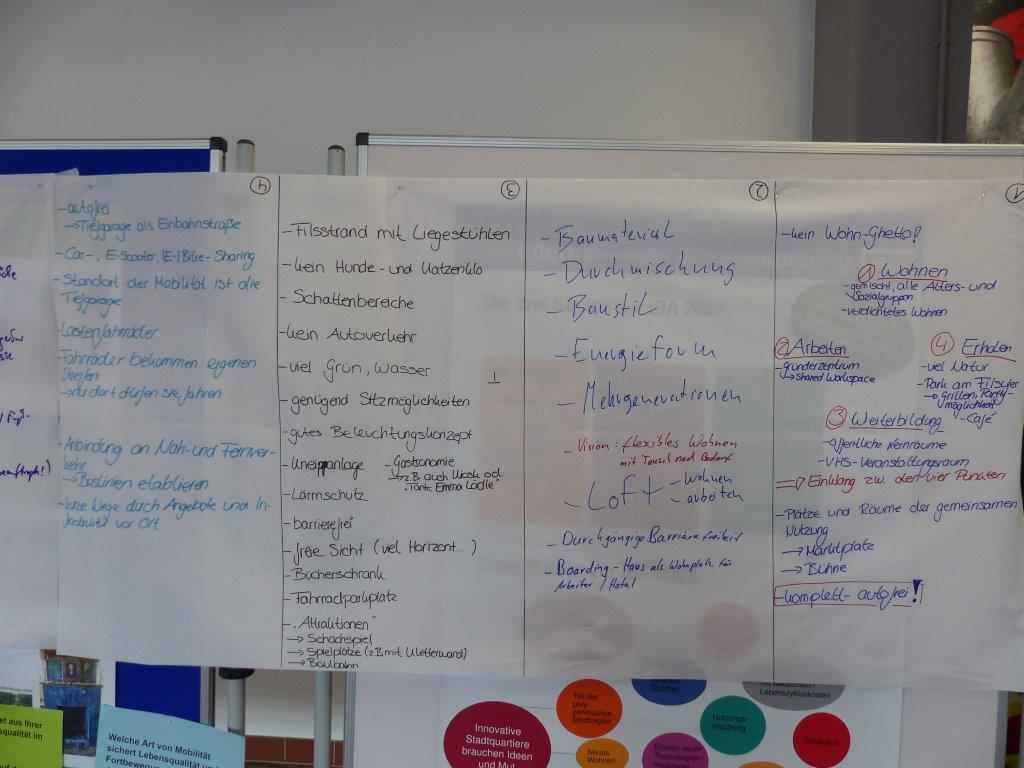 ④
-autofrei
→Tiefgarage als Einbahnstraße
-Car-, E-Scooter, (E-)Bike-Sharing
-Standort der Mobilität ist die
Tiefgarage
-Lastenfahrräder
-Fahrräder bekommen eigenen
Streifen
→nur dort dürfen sie fahren
-Anbindung an Nah- und Fernver-
kehr
→Buslinien etablieren
-kurze Wege durch Angebote und In-
frastruktur vor Ort
③
-Filsstrand mit Liegestühlen
-kein Hunde- und Katzenklo
-Schattenbereiche
-kein Autoverkehr
-viel Grün, Wasser
-genügend Sitzmöglichkeiten
-gutes Beleuchtungskonzept
-Kneippanlage
-Gastronomie
→z.B. auch Kiosk od.
"Tante Emma Lädle"
-Lärmschutz
-barrierefrei
-freie Sicht (viel Horizont...)
-Bücherschrank
-Fahrradparkplatz
-"Attraktionen"
→ Schachspiel
→ Spielplätze (z.B. mit Kletterwand)
→ Boulbahn
②
- Baumaterial
- Durchmischung
- Baustil
- Energieform
- Mehrgenerationen
- Vision: flexibles Wohnen
mit Tausch nach Bedarf
- Loft
- wohnen
- arbeiten
- Durchgängige Barrierefreiheit
- Boarding-Haus als Wohnplatz für
Arbeiter / Hotel
①
-kein Wohn-Ghetto!
① Wohnen
-gemischt, alle Alters- und
Sozialgruppen
-verdichtetes Wohnen
② Arbeiten
-Gründerzentrum
→ Shared Workspace
④ Erholen
-viel Natur
-Park am Filsufer
→ Grillen, Party-
möglichkeit
-Café
③ Weiterbildung
-öffentliche Lernräume
-VHS-Veranstaltungsraum
⇒ Einklang zw. den vier Punkten
-Plätze und Räume der gemeinsamen
Nutzung
→ Marktplatz
→ Bühne
-komplett- autofrei!
et aus Ihrer
squalität im
Welche Art von Mobilität
sichert Lebensqualität
Fortbewegung
Innovative
Stadtquartiere
brauchen Ideen
und Mut
Teil der
poly-
zentrischen
Stadtregion
Neues
Wohnen
Quartier
Einsatz neuer
Technologien /
modulares
Nutzungs-
mischung
mit Baustoffen /
Lebenszykluskosten
Baukultur